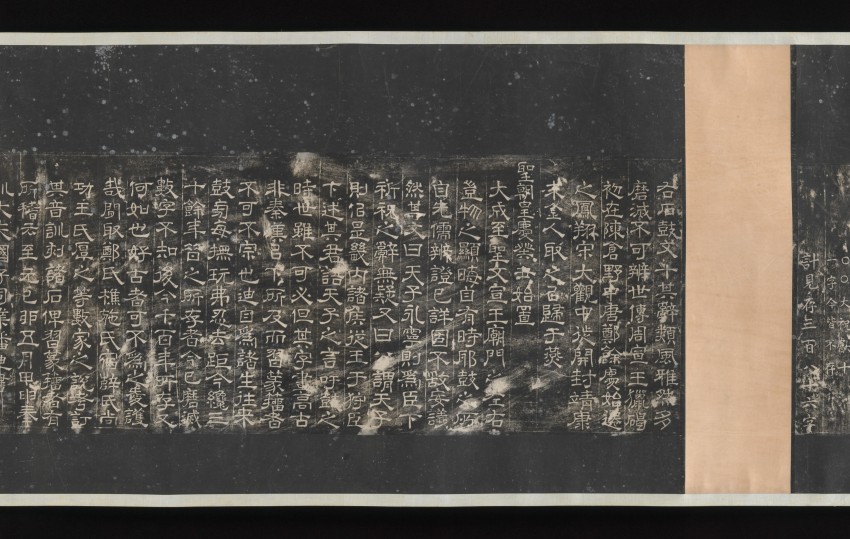 一字今皆不存
計見存三百八十六字
右石鼓文十其辭類風雅然多
磨滅不可辨世傳周宣王獵碣
初在陳倉野中唐鄭餘慶始遷
之鳳翔宋大觀中徙開封靖康
末金人取之㠯歸于燕
聖朝皇慶癸丑始置
大成至聖文宣王廟門之左右
豈物之顯晦自有時耶鼓之所
自先儒辨證已詳固不敢妄議
然其文曰天子永寧則為臣下
祈祝之辭無疑又曰公謂天子
則佀是畿內諸侯從王于狩臣
下述其君語天子之言所謂之
時世雖不可必但其字畫高古
非秦漢㠯下所及而習篆籀者
不可不宗也迪自為諸生往來
鼓旁每撫玩弗忍去距今纔三
十餘年昔之所存者今已磨滅
數字不知後今千百年所存又
何如也好古者可不為之愛護
哉間取鄭氏樵施氏宿薛氏尚
功王氏厚之等數家之說考訂
其音訓刻諸石俾習篆籀者有
所稽云至元己卯五月甲申奉
訓大夫國子司業潘迪書